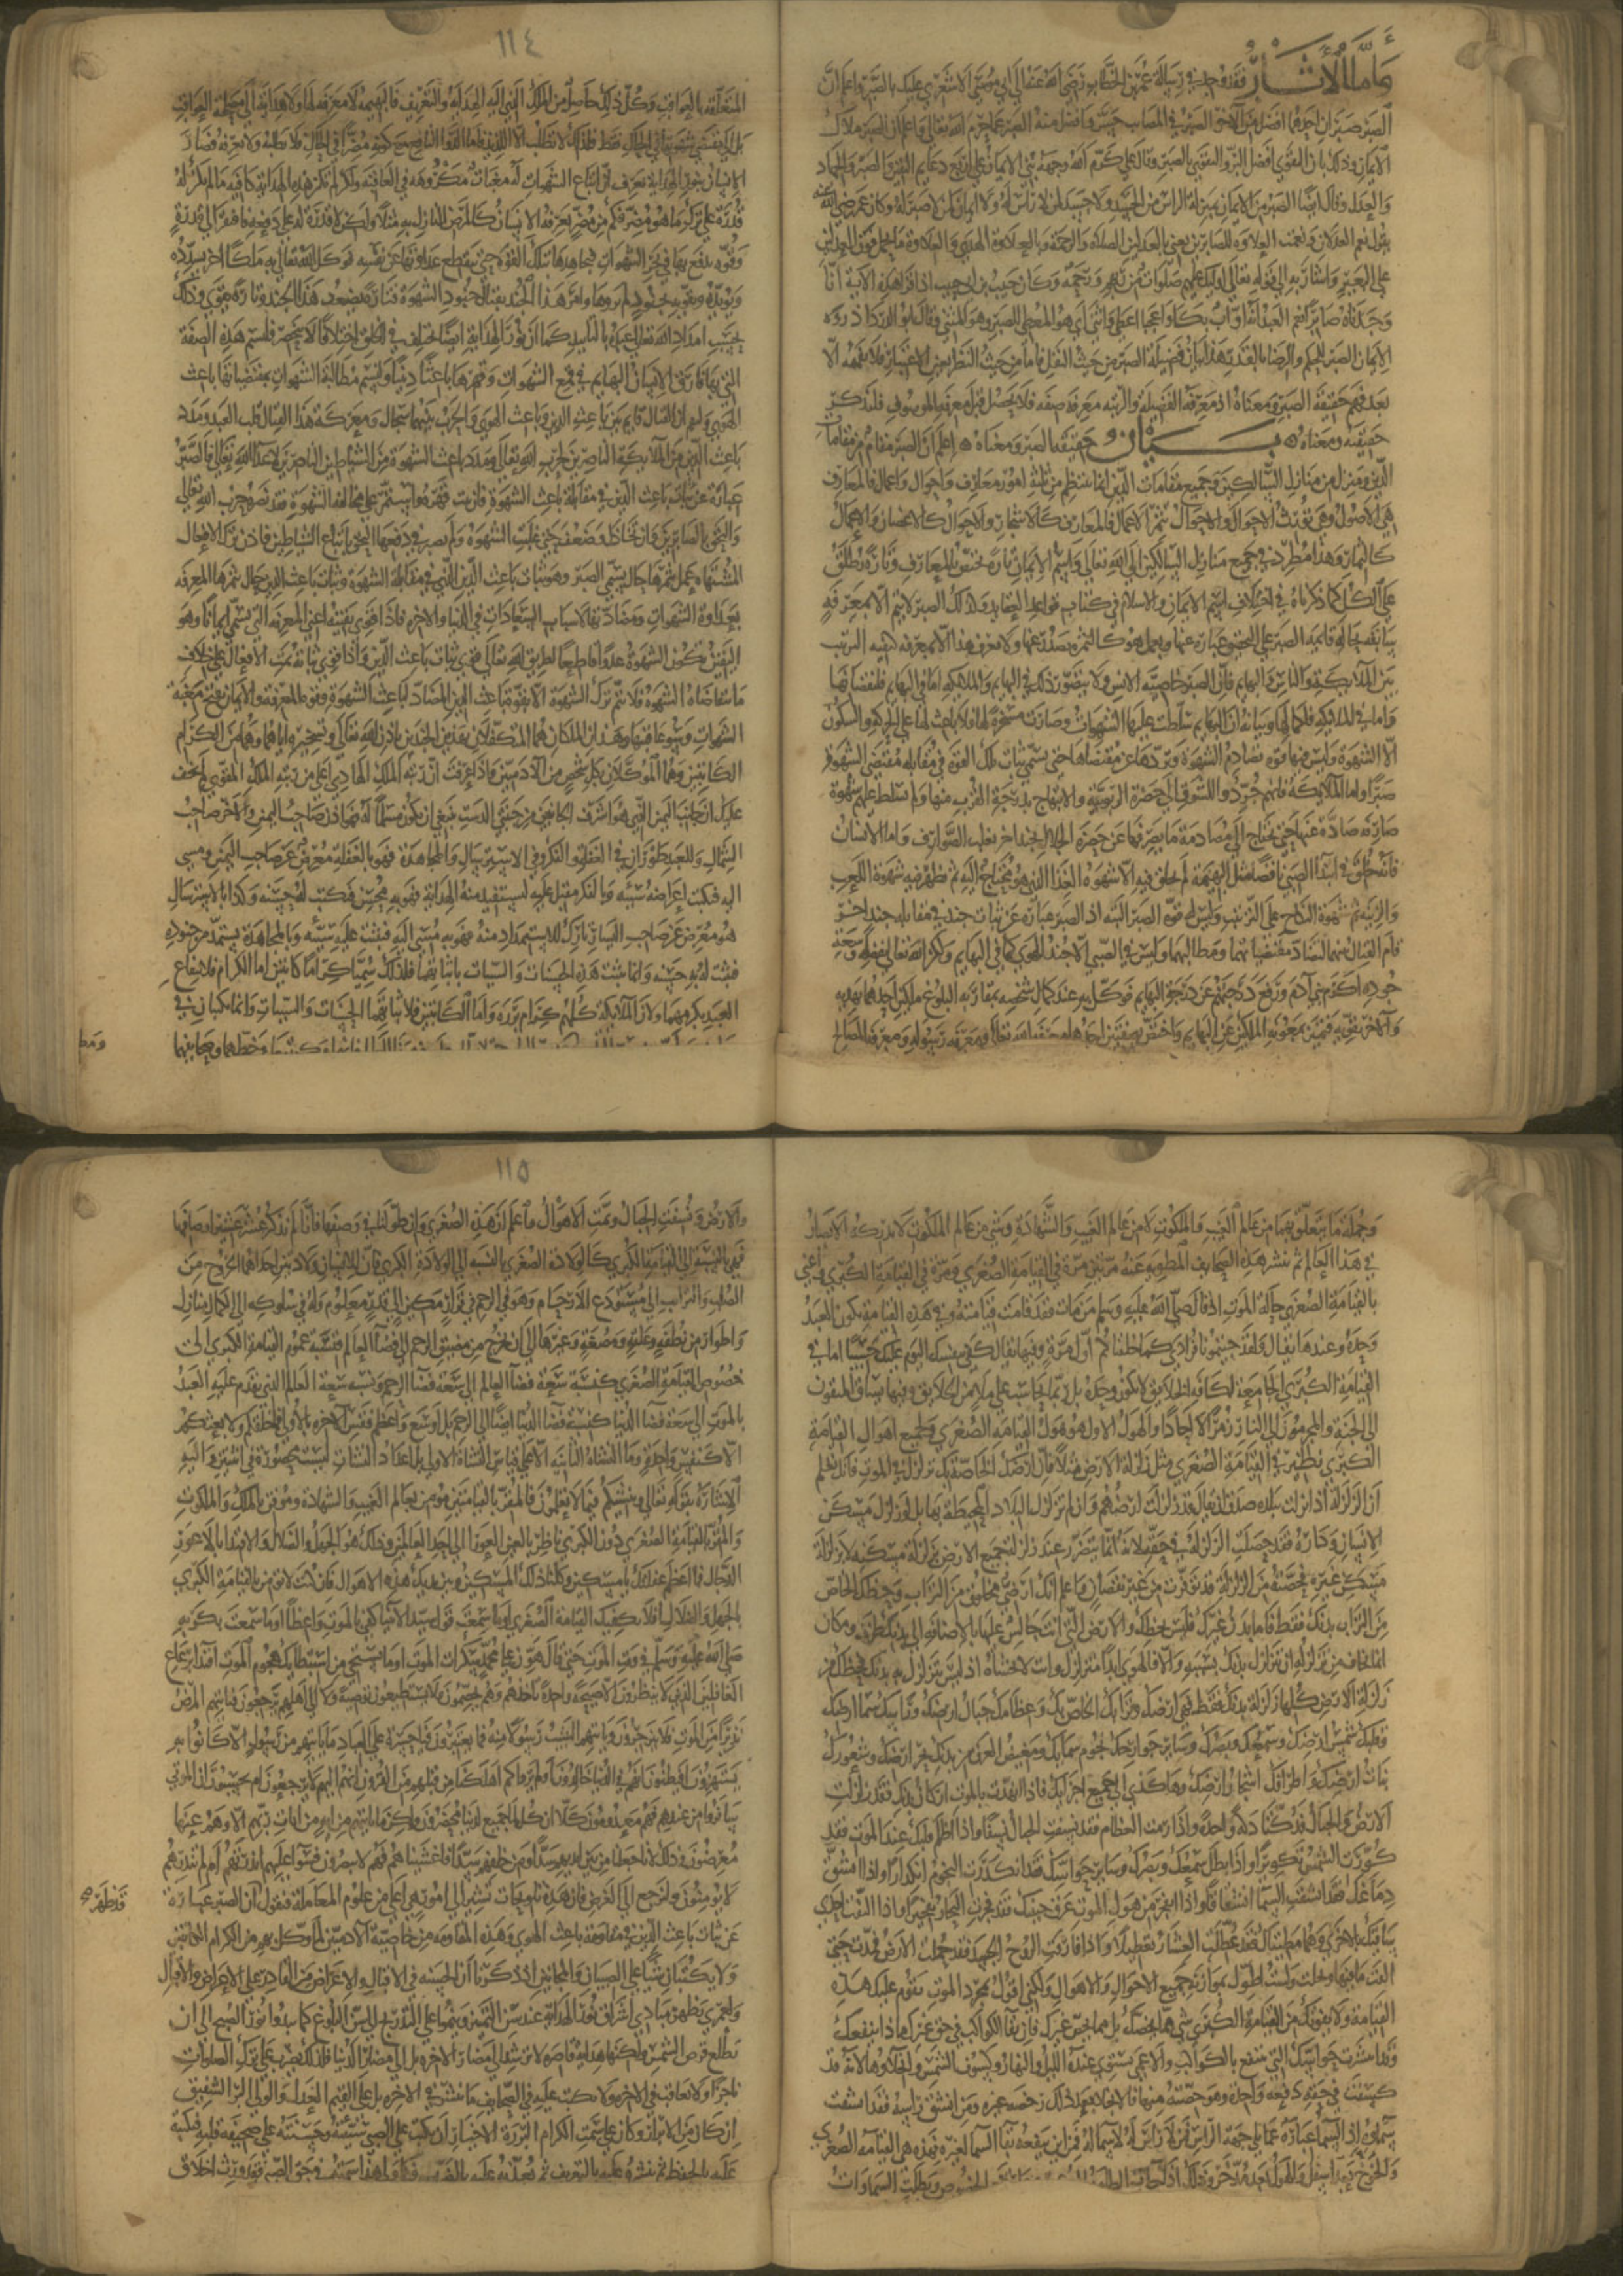 وأما الآثار فقد وجد في رسالة عمر بن الخطاب رضي الله عنه الى ابي موسى الاشعري عليك بالصبر واعلم ان
الصبر صبران احدهما افضل من الآخر الصبر في المصايب حسن وافضل منه الصبر عما حرم الله تعالى واعلم ان الصبر ملاك
الايمان وذلك بان التقوى افضل البر والتقوى بالصبر وقال علي كرم الله وجهه بني الايمان على اربع دعايم اليقين والصبر والجهاد
والعدل وقال ايضا الصبر من الايمان بمنزلة الراس من الجسد ولا جسد لمن لا راس له ولا ايمان لمن لا صبر له وكان عمر رضي الله عنه
يقول نعم العدلان ونعمت العلاوة للصابرين يعني بالعدلين الصلاة والرحمة وبالعلاوة الهدى والعلاوة ما يحمل فوق العدلين
على البعير واشار به الى قوله تعالى اوليك عليهم صلوات من ربهم ورحمة وكان حبيب بن ابي حبيب اذا قرا هذه الاية انا
وجدناه صابرا نعم العبد انه اواب بكا وا عجبا اعطى واثنى اي هو المعطي للصبر وهو المثني وقال ابو الدردا ذروة
الايمان الصبر للحكم والرضا بالقدر هذا بيان فضيلة الصبر من حيث النقل فاما من حيث النظر بعين الاعتبار فلا تفهمه الا
بعد فهم حقيقة الصبر ومعناه اذ معرفة الفضيلة والرتبة معرفة صفة فلا يحصل قبل معرفة الموصوف فلنذكر
حقيقته ومعناه بيان حقيقة الصبر ومعناه اعلم ان الصبر مقام من مقامات
الدين ومنزل من منازل السالكين وجميع مقامات الدين انما تنتظم من ثلثة امور معارف واحوال واعمال فالمعارف
هي الاصول وهي تورث الاحوال والاحوال تثمر الاعمال فالمعارف كالاشجار والاحوال كالاغصان والاعمال
كالثمار وهذا مطرد في جميع منازل السالكين الى الله تعالى واسم الايمان تارة يختص بالمعارف وتارة يطلق
على الكل كما ذكرناه في اختلاف اسم الايمان والاسلام في كتاب قواعد العقايد وكذلك الصبر لا يتم الا بمعرفة
سابقة وبحالة قايمة فالصبر على التحقيق عبارة عنها والعمل هو كالثمرة يصدر عنها ولا يعرف هذا الا بمعرفة كيفية الترتيب
بين الملايكة والانس والبهايم فان الصبر خاصية الانس ولا يتصور ذلك في البهايم والملايكة اما في البهايم فلنقصانها
واما في الملايكة فلكمالها وبيانه ان البهايم سلطت عليها الشهوات وصارت مسخرة لها فلا باعث لها على الحركة والسكون
الا الشهوة وليس فيها قوة تصادم الشهوة وتردها عن مقتضاها حتى يسمى ثبات تلك القوة في مقابلة مقتضى الشهوة
صبرا واما الملايكة فانهم جردوا للشوق الى حضرة الربوبية والابتهاج بدرجة القرب منها ولم تسلط عليهم شهوة
صارفة صادة عنها حتى يحتاج الى مصادمة ما يصرفها عن حضرة الجلال بجند اخر يغلب الصوارف واما الانسان
فانه خلق في ابتدا الصبى ناقصا مثل البهيمة لم يخلق فيه الا شهوة الغذا الذي هو محتاج اليه ثم تظهر فيه شهوة اللعب
والزينة ثم شهوة النكاح على الترتيب وليس له قوة الصبر البتة اذ الصبر عبارة عن ثبات جند في مقابلة جند اخر
قام القتال بينهما لتضاد مقتضياتهما ومطالبهما وليس في الصبي الا جند الهوى كما في البهايم ولكن الله تعالى بفضله وسعة
جوده اكرم بني آدم ورفع درجتهم عن درجة البهايم فوكل به عند كمال شخصه بمقاربة البلوغ ملكين احدهما يهديه
والآخر يقويه فتميز بمعونة الملكين عن البهايم واختص بصفتين احداهما معرفة الله تعالى ومعرفة رسوله ومعرفة المصالح
١١٤
المتعلقة بالعواقب وكل ذلك حاصل من الملك الذي اليه الهداية والتعريف فالبهيمة لا معرفة لها ولا هداية الى مصلحة العواقب
بل الى مقتضى شهوتها في الحال فقط فلذلك لا تطلب الا اللذيذ واما الدوا النافع مع كونه مضرا في الحال فلا تطلبه ولا تعرفه فصار
الانسان بنور الهداية يعرف ان اتباع الشهوات له مغبات مكروهة في العاقبة ولكن لم تكن هذه الهداية كافية ما لم يكن له
قدرة على ترك ما هو مضر فكم من مضر يعرفه الانسان كالمرض النازل به مثلا ولكن لا قدرة له على دفعه فافتقر الى قدرة
وقوة يدفع بها في نحر الشهوات فيجاهدها بتلك القوة حتى يقطع عداوتها عن نفسه فوكل الله تعالى به ملكا اخر يسدده
ويؤيده ويقويه بجنود لم تروها وامر هذا الجند بقتال جنود الشهوة فتارة يضعف هذا الجند وتارة يقوى وذلك
بحسب امداد الله تعالى عبده بالتاييد كما ان نور الهداية ايضا يختلف في الخلق اختلافا لا ينحصر فلنسم هذه الصفة
التي بها فارق الانسان البهايم في قمع الشهوات وقهرها باعثا دينيا ولنسم مطالبة الشهوات بمقتضياتها باعث
الهوى وليفهم ان القتال قايم بين باعث الدين وباعث الهوى والحرب بينهما سجال ومعركة هذا القتال قلب العبد ومدد
باعث الدين من الملايكة الناصرين لحزب الله تعالى ومدد باعث الشهوة من الشياطين الناصرين لاعدا الله تعالى فالصبر
عبارة عن ثبات باعث الدين في مقابلة باعث الشهوة فان ثبت حتى قهره واستمر على مخالفة الشهوة فقد نصر حزب الله تعالى
والتحق بالصابرين وان تخاذل وضعف حتى غلبت الشهوة ولم يصبر في دفعها التحق باتباع الشياطين فاذن ترك الافعال
المشتهاة عمل يثمرها حال يسمى الصبر وهو ثبات باعث الدين الذي في مقابلة الشهوة وثبات باعث الدين حال تثمرها المعرفة
بعداوة الشهوات ومضادتها لاسباب السعادات في الدنيا والاخرة فاذا قوي يقينه اعني المعرفة التي تسمى ايمانا وهو
اليقين بكون الشهوة عدوا قاطعا لطريق الله تعالى قوي ثبات باعث الدين واذا قوي ثباته تمت الافعال على خلاف
ما تتقاضاه الشهوة فلا يتم ترك الشهوة الا بقوة باعث الدين المضاد لباعث الشهوة وقوة المعرفة والايمان تقبح مغبة
الشهوات وسوء عاقبتها وهذان الملكان هما المتكفلان بهذين الجندين باذن الله تعالى وتسخيره اياهما وهما من الكرام
الكاتبين وهما الموكلان بكل شخص من الآدميين فاذا عرفت ان رتبة الملك الهادي اعلى من رتبة الملك المقوي لم يخف
عليك ان جانب اليمين الذي هو اشرف الجانبين من جنبتي الدست ينبغي ان يكون مسلما له فهو اذن صاحب اليمين والآخر صاحب
الشمال وللعبد طوران في الغفلة والفكر وفي الاسترسال والمجاهدة فهو بالغفلة معرض عن صاحب اليمين ومسي
اليه فيكتب اعراضه سيئة وبالفكر مقبل عليه ليستفيد منه الهداية فهو به محسن فيكتب له حسنة وكذا بالاسترسال
هو معرض عن صاحب اليسار تارك للاستمداد منه فهو به مسي اليه فيثبت عليه سيئة وبالمجاهدة يستمد من جنوده
فيثبت له به حسنة وانما ثبتت هذه الحسنات والسيات باثباتهما فلذلك سميا كراما كاتبين اما الكرام فلانتفاع
العبد بكرمهما ولان الملايكة كلهم كرام بررة واما الكاتبين فلاثباتهما الحسنات والسيات وانما يكتبان في
ومط
وجملة ما يتعلق بهما من عالم الغيب والملكوت لا من عالم الغيب والشهادة وشي من عالم الملكوت لا تدركه الابصار
في هذا العالم ثم تنشر هذه الصحايف المطوية عنه مرتين مرة في القيامة الصغرى ومرة في القيامة الكبرى واعني
بالقيامة الصغرى حالة الموت اذ قال صلى الله عليه وسلم من مات فقد قامت قيامته وفي هذه القيامة يكون العبد
وحده وعندها يقال ولقد جيتمونا فرادى كما خلقناكم اول مرة وفيها يقال كفى بنفسك اليوم عليك حسيبا اما في
القيامة الكبرى الجامعة لكافة الخلايق لا يكون وحده بل ربما يحاسب على ملا من الخلايق وفيها يساق المتقون
الى الجنة والمجرمون الى النار زمرا لا احادا والهول الاول هو هول القيامة الصغرى ولجميع اهوال القيامة
الكبرى نظير في القيامة الصغرى مثل زلزلة الارض مثلا فان ارضك الخاصة بك تزلزل في الموت فانك تعلم
ان الزلزلة اذا نزلت ببلدة صدق ان يقال قد زلزلت ارضهم وان لم تزلزل البلاد المحيطة بها بل لو زلزل مسكن
الانسان وداره فقد حصلت الزلزلة في حقه لانه انما يتضرر عند زلزلة جميع الارض بزلزلة مسكنه لا بزلزلة
مسكن غيره فحصته من الزلزلة قد توفرت من غير نقصان واعلم انك ارضي مخلوق من التراب وحظك الخاص
من التراب بدنك فقط فاما بدن غيرك فليس بحظك والارض التي انت جالس عليها بالاضافة الى بدنك ظرف ومكان
وانما تخاف من تزلزله ان يتزلزل بدنك بسببه والا فالهوى ابدا متزلزل وانت لا تخشاه اذ ليس يتزلزل به بدنك فحظك من
زلزلة الارض كلها زلزلة بدنك فقط فهي ارضك وترابك الخاص بك وعظامك جبال ارضك وراسك سما ارضك
وقلبك شمس ارضك وسمعك وبصرك وساير حواسك نجوم سمايك ومفيض العرق من بدنك بحر ارضك وشعورك
نبات ارضك واطرافك اشجار ارضك وهاكذا الى جميع اجزايك فاذا انهدمت بالموت اركان بدنك فقد زلزلت
الارض والجبال فدكتا دكة واحدة واذا رمت العظام فقد نسفت الجبال نسفا واذا اظلم قلبك عند الموت فقد
كورت الشمس تكويرا واذا بطل سمعك وبصرك وساير حواسك فقد انكدرت النجوم انكدارا واذا انشق
دماغك فقد انشقت السما انشقاقا واذا انفجر من هول الموت عرق جبينك فقد فجرت البحار تفجيرا واذا التفت احدى
ساقيك بالاخرى وهما مطيتاك فقد عطلت العشار تعطيلا واذا فارقت الروح الجسد فقد حملت الارض فمدت حتى
القت ما فيها وتخلت ولست اطول بموازنة جميع الاحوال والاهوال ولكني اقول بمجرد الموت تقوم عليك هذه
القيامة ولا يفوتك من القيامة الكبرى شي مما يخصك بل مما يخص غيرك فان بقا الكواكب في حق غيرك ماذا ينفعك
وقد انتثرت حواسك التي تنتفع بالكواكب والاعمى يستوي عنده الليل والنهار وكسوف الشمس وانجلاوها لانه قد
كسفت في حقه دفعة واحدة وهو حصته منها فالانجلا بعد ذلك حصة غيره ومن انشق راسه فقد انشقت
سماوه اذ السما عبارة عما يلي جهة الراس فمن لا راس له لا سما له فمن اين ينفعه بقا السما لغيره فهذه هي القيامة الصغرى
والخوف بعد اسفل والهول بعد مدخر وذلك اذا جات الطامة الكبرى وارتفع الخصوص وبطلت السماوات
١١٥
والارض ونسفت الجبال وتمت الاهوال واعلم ان هذه الصغرى وان طولنا في وصفها فانا لم نذكر عشر عشير اوصافها
فهي بالنسبة الى القيامة الكبرى كالولادة الصغرى بالنسبة الى الولادة الكبرى فان للانسان ولادتين احداهما الخروج من
الصلب والترايب الى مستودع الارحام وهو في الرحم في قرار مكين الى قدر معلوم وله في سلوكه الى الكمال منازل
واطوار من نطفة وعلقة ومضغة وغيرها الى ان يخرج من مضيق الرحم الى فضا العالم فنسبة عموم القيامة الكبرى الى
خصوص القيامة الصغرى كنسبة سعة فضا العالم الى سعة فضا الرحم ونسبة سعة العالم الذي يقدم عليه العبد
بالموت الى سعة فضا الدنيا كنسبة فضا الدنيا ايضا الى الرحم بل اوسع واعظم فقس الآخرة بالاولى فما خلقكم ولا بعثكم
الا كنفس واحدة وما النشاة الثانية الا على قياس النشاة الاولى بل اعداد النشات ليست محصورة في اثنين واليه
الاشارة بقوله تعالى وننشئكم فيما لا تعلمون فالمقر بالقيامتين مؤمن بعالم الغيب والشهادة وموقن بالملك والملكوت
والمقر بالقيامة الصغرى دون الكبرى ناظر بالعين العورا الى احد العالمين وذلك هو الجهل والضلال والاقتدا بالاعور
الدجال فما اعظم غفلتك يا مسكين وكلنا ذلك المسكين وبين يديك هذه الاهوال فان كنت لا تومن بالقيامة الكبرى
بالجهل والضلال افلا يكفيك القيامة الصغرى او ما سمعت قول سيد الانبيا كفى بالموت واعظا او ما سمعت بكربه
صلى الله عليه وسلم في وقت الموت حتى قال هون على محمد سكرات الموت او ما تستحي من استبطايك هجوم الموت اقتدا برعاع
الغافلين الذين لا ينظرون الا صيحة واحدة تاخذهم وهم يخصمون فلا يستطيعون توصية ولا الى اهلهم يرجعون فياتيهم المرض
نذيرا من الموت فلا ينزجرون وياتيهم الشيب رسولا منه فما يعتبرون فيا حسرة على العباد ما ياتيهم من رسول الا كانوا به
يستهزون افيظنون انهم في الدنيا خالدون اولم يروا كم اهلكنا من قبلهم من القرون انهم اليهم لا يرجعون ام يحسبون ان الموتى
سافروا من عندهم فهم معدومون كلا ان كل لما جميع لدينا محضرون ولكن ما تاتيهم من اية من ايات ربهم الا وهم عنها
معرضون وذلك لانا جعلنا من بين ايديهم سدا ومن خلفهم سدا فاغشيناهم فهم لا يبصرون وسوا عليهم اانذرتهم ام لم تنذرهم
لا يومنون ولنرجع الى الغرض فان هذه تلويحات تشير الى امور هي اعلى من علوم المعاملة فنقول ان الصبر عبارة
قد ظهر صح
عن ثبات باعث الدين في مقاومة باعث الهوى وهذه المقاومة من خاصية الآدميين لما وكل بهم من الكرام الكاتبين
ولا يكتبان شيا على الصبيان والمجانين اذ قد ذكرنا ان الحسنة في الاقبال والاعراض من القادر على الاعراض والاقبال
ولعمري يظهر مبادي اشراق نور الهداية عند سن التمييز وينمو على التدريج الى سن البلوغ كما يبدوا نور الصبح الى ان
يطلع قرص الشمس ولكنها هداية قاصرة لا ترشد الى مضار الآخرة بل الى مضار الدنيا فلذلك يضرب على ترك الصلوات
ناجزا ولا يعاقب في الاخرة ولا يكتب عليه في الصحايف ما ينشر في الاخرة بل على القيم العدل والولي البر الشفيق
ان كان من الابرار وكان على سمت الكرام البررة الاخيار ان يكتب على الصبي سيئته وحسنته على صحيفة قلبه فيكتبه
عليه بالحفظ ثم ينشره عليه بالتعريف ثم يعذبه عليه بالضرب فكل ولي هذا سمته في حق الصبي فقد ورث اخلاق